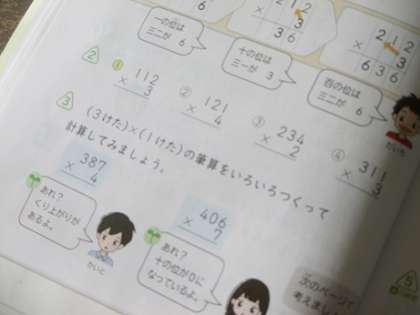 6
2 1 2
× 3
3 6
2 1 2
× 3
6 3 6
一の位は
三二が 6
十の位は
三一が 3
百の位は
三二が 6
かいち
2
① 112
× 3
② 121
× 4
③ 234
× 2
④ 311
× 3
3
(3けた)×(1けた)の筆算をいろいろつくって
計算してみましょう。
387
× 4
406
× 7
あれ?
くり上がりが
あるよ。
かいと
あれ?
十の位が0に
なっているよ。
次のページで
考えまし
5